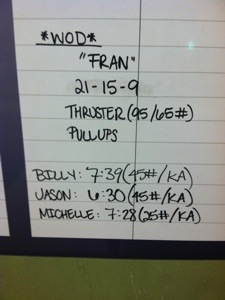 *WOD*
"FRAN"
21-15-9
THRUSTER (95/65#)
PULLUPS
BILLY: 7:39 (45#/KA)
JASON: 6:30 (45#/KA)
MICHELLE: 7:28 (25#/KA)